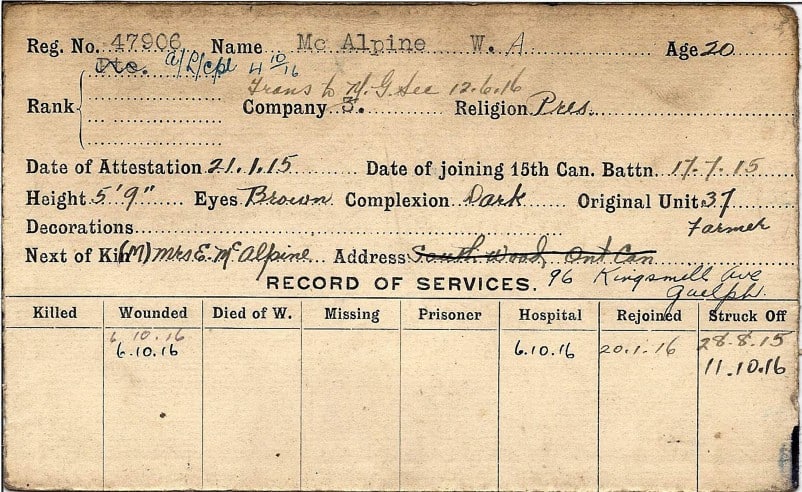 Reg. No. 47906 Name Mc Alpine W. A Age 20
Pte. A/L/Cpl 4 10/16
Trans to M. G. Sec 12.6.16
Rank Company 3. Religion Pres.
Date of Attestation 21.1.15 Date of joining 15th Can. Battn. 17.7.15
Height 5'9" Eyes Brown Complexion Dark Original Unit 37
Decorations Farmer
Next of Kin (M) Mrs E. Mc Alpine Address South Wood, Ont Can
RECORD OF SERVICES. 96 Kingsmill Ave
Guelph.
Killed Wounded Died of W. Missing Prisoner Hospital Rejoined Struck Off
6.10.16 28.8.15
6.10.16 6.10.16 20.1.16
11.10.16